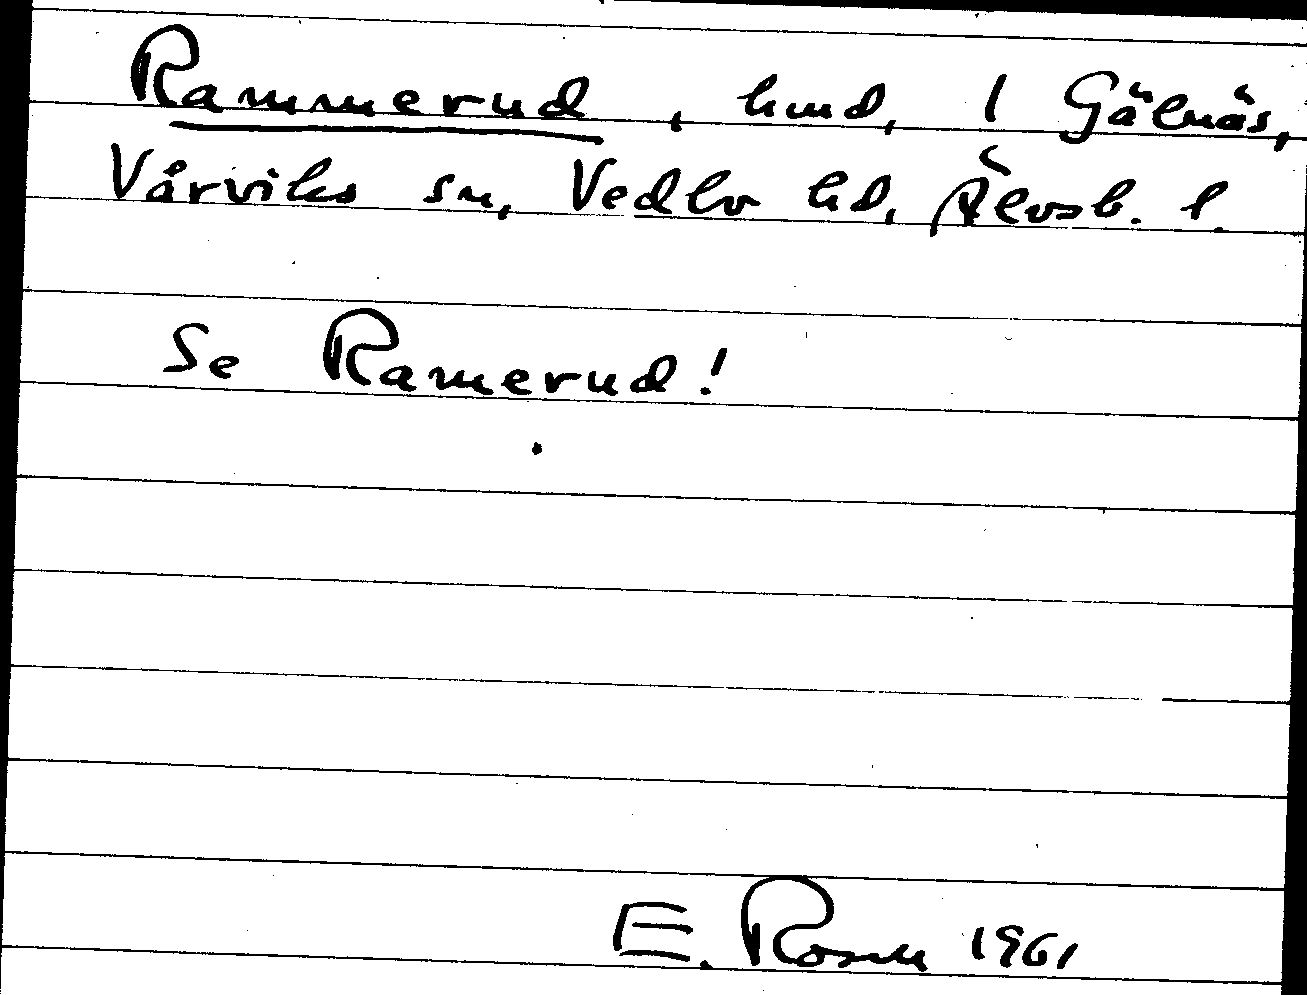 Rammerud, hmd, 1 Gälnäs,
Vårviks sn, Vedbo hd, Älvsb. l.
Se Ramerud!
E. Rosen 1961